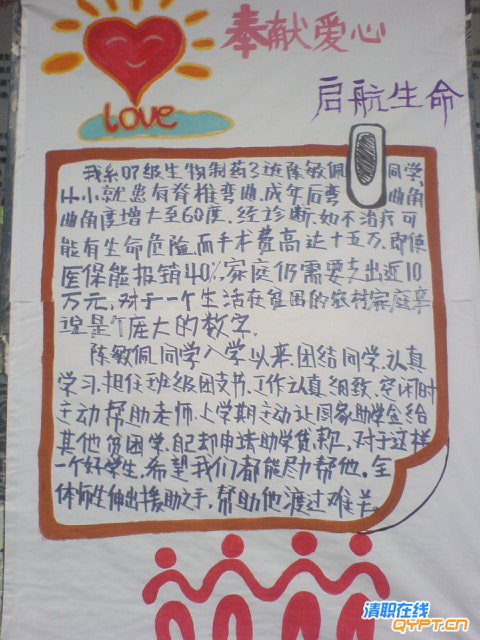 奉献爱心
启航生命
Love
我系07级生物制药3班陈敏佩同学,
从小就患有脊椎弯曲,成年后弯曲角
曲角度增大至60度,经诊断,如不治疗可
能有生命危险,而手术费高达十五万,即使
医保能报销40%家庭仍需要支出近10
万元,对于一个生活在贫困的农村家庭来
说是个庞大的数字.
陈敏佩同学入学以来,团结同学,认真
学习,担任班级团支书,工作认真细致,空闲时
主动帮助老师,上学期主动让国家助学金给
其他贫困学,自己却申请助学贷款,对于这样
一个好学生,希望我们都能尽力帮他.全
体师生伸出援助之手,帮助他渡过难关。
清职在线
QYPT.CN